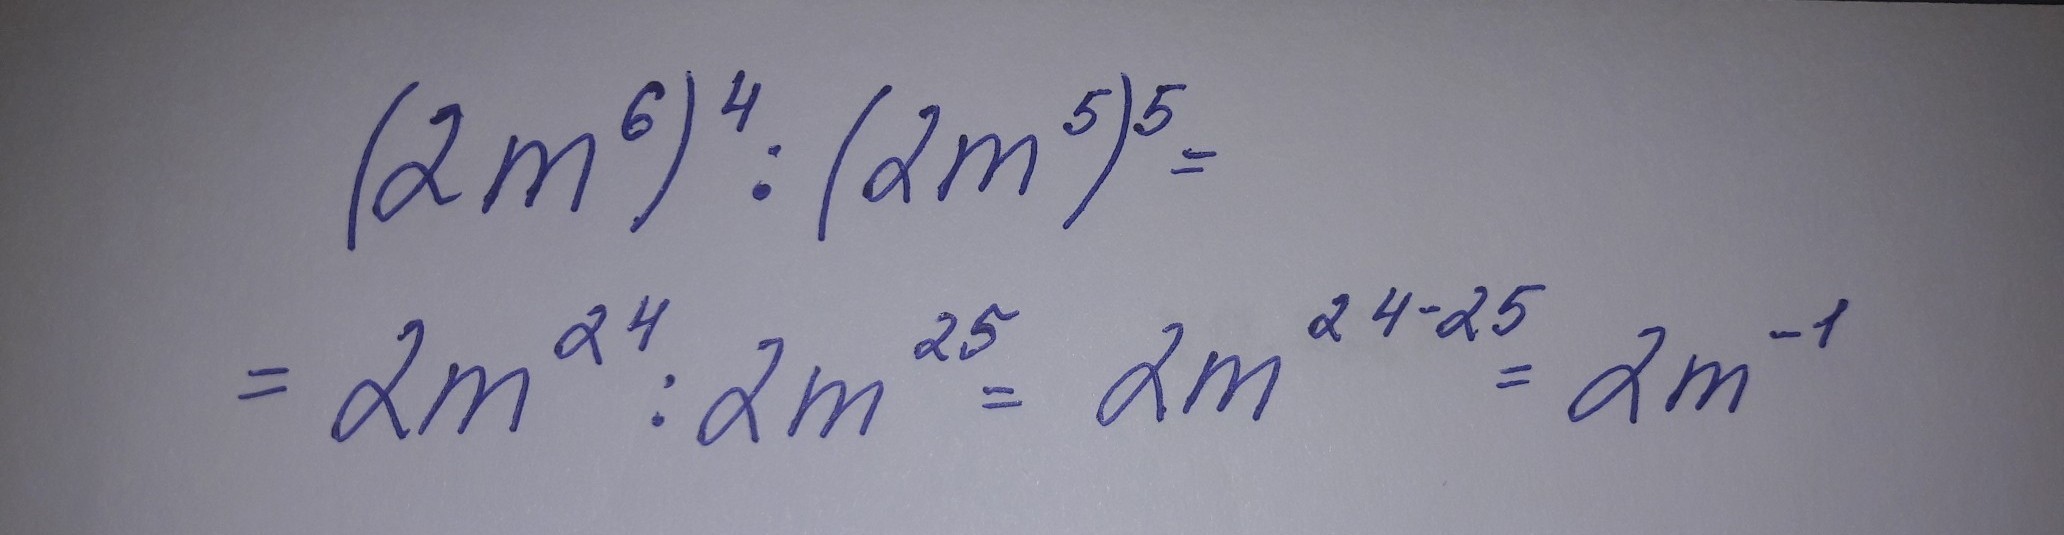 (2m⁶)⁴ : (2m⁵)⁵ =
= 2m²⁴ : 2m²⁵ = 2m²⁴⁻²⁵ = 2m⁻¹